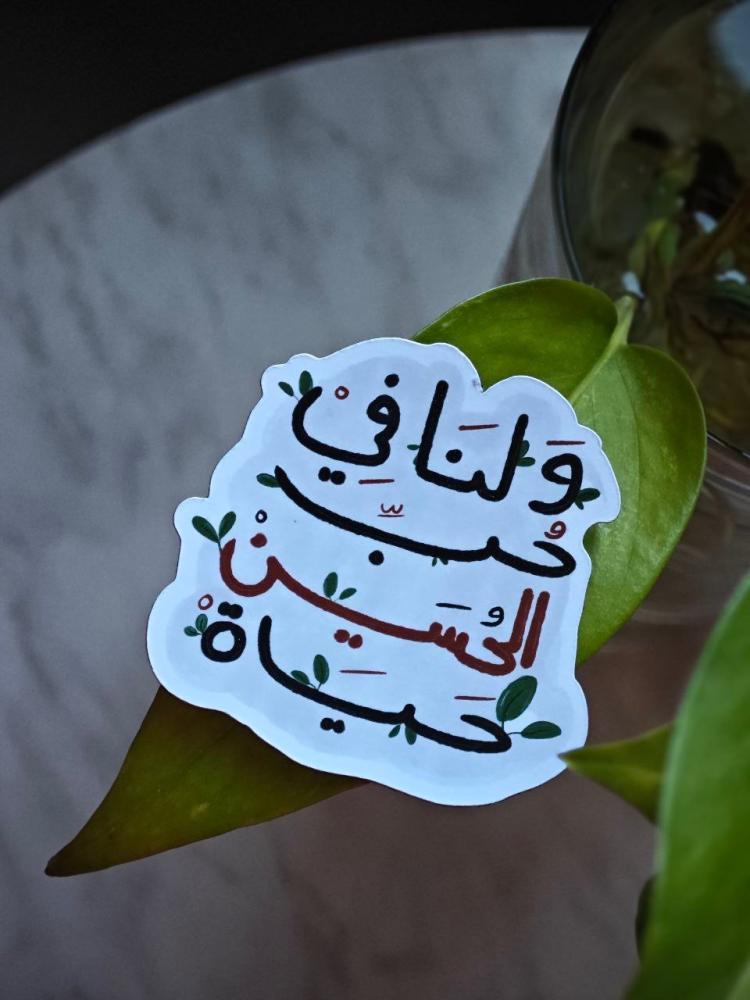 وَلَنا في
حُبِّ
الحُسَينْ
حَياةْ